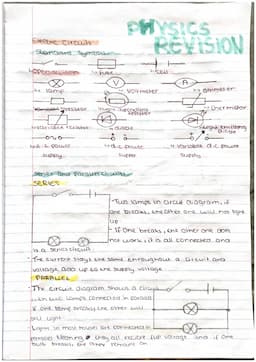 PHYSICS
REVISION
Electric Circuits
Standard Symbols
fuse
cell
lamp
Voltmeter
ammeter
Thermistor
diode
d.c power
Variable d.c power
supply
supply
supply
Series and parallel circuits
SERIES
- Two lamps in circuit diagram, if
one breaks, the other one will not light
up
- If one breaks, the other one does
not work, it is all connected and
is a series circuit
- The current stays the same throughout a circuit and
voltage add up to the supply voltage
PARALLEL
- The circuit diagram shows a
with two lamps connected in parallel
If one lamp breaks the other will
still light
in most houses are connected in
parallel
they all receive full voltage and if one
bulb breaks the other remain on